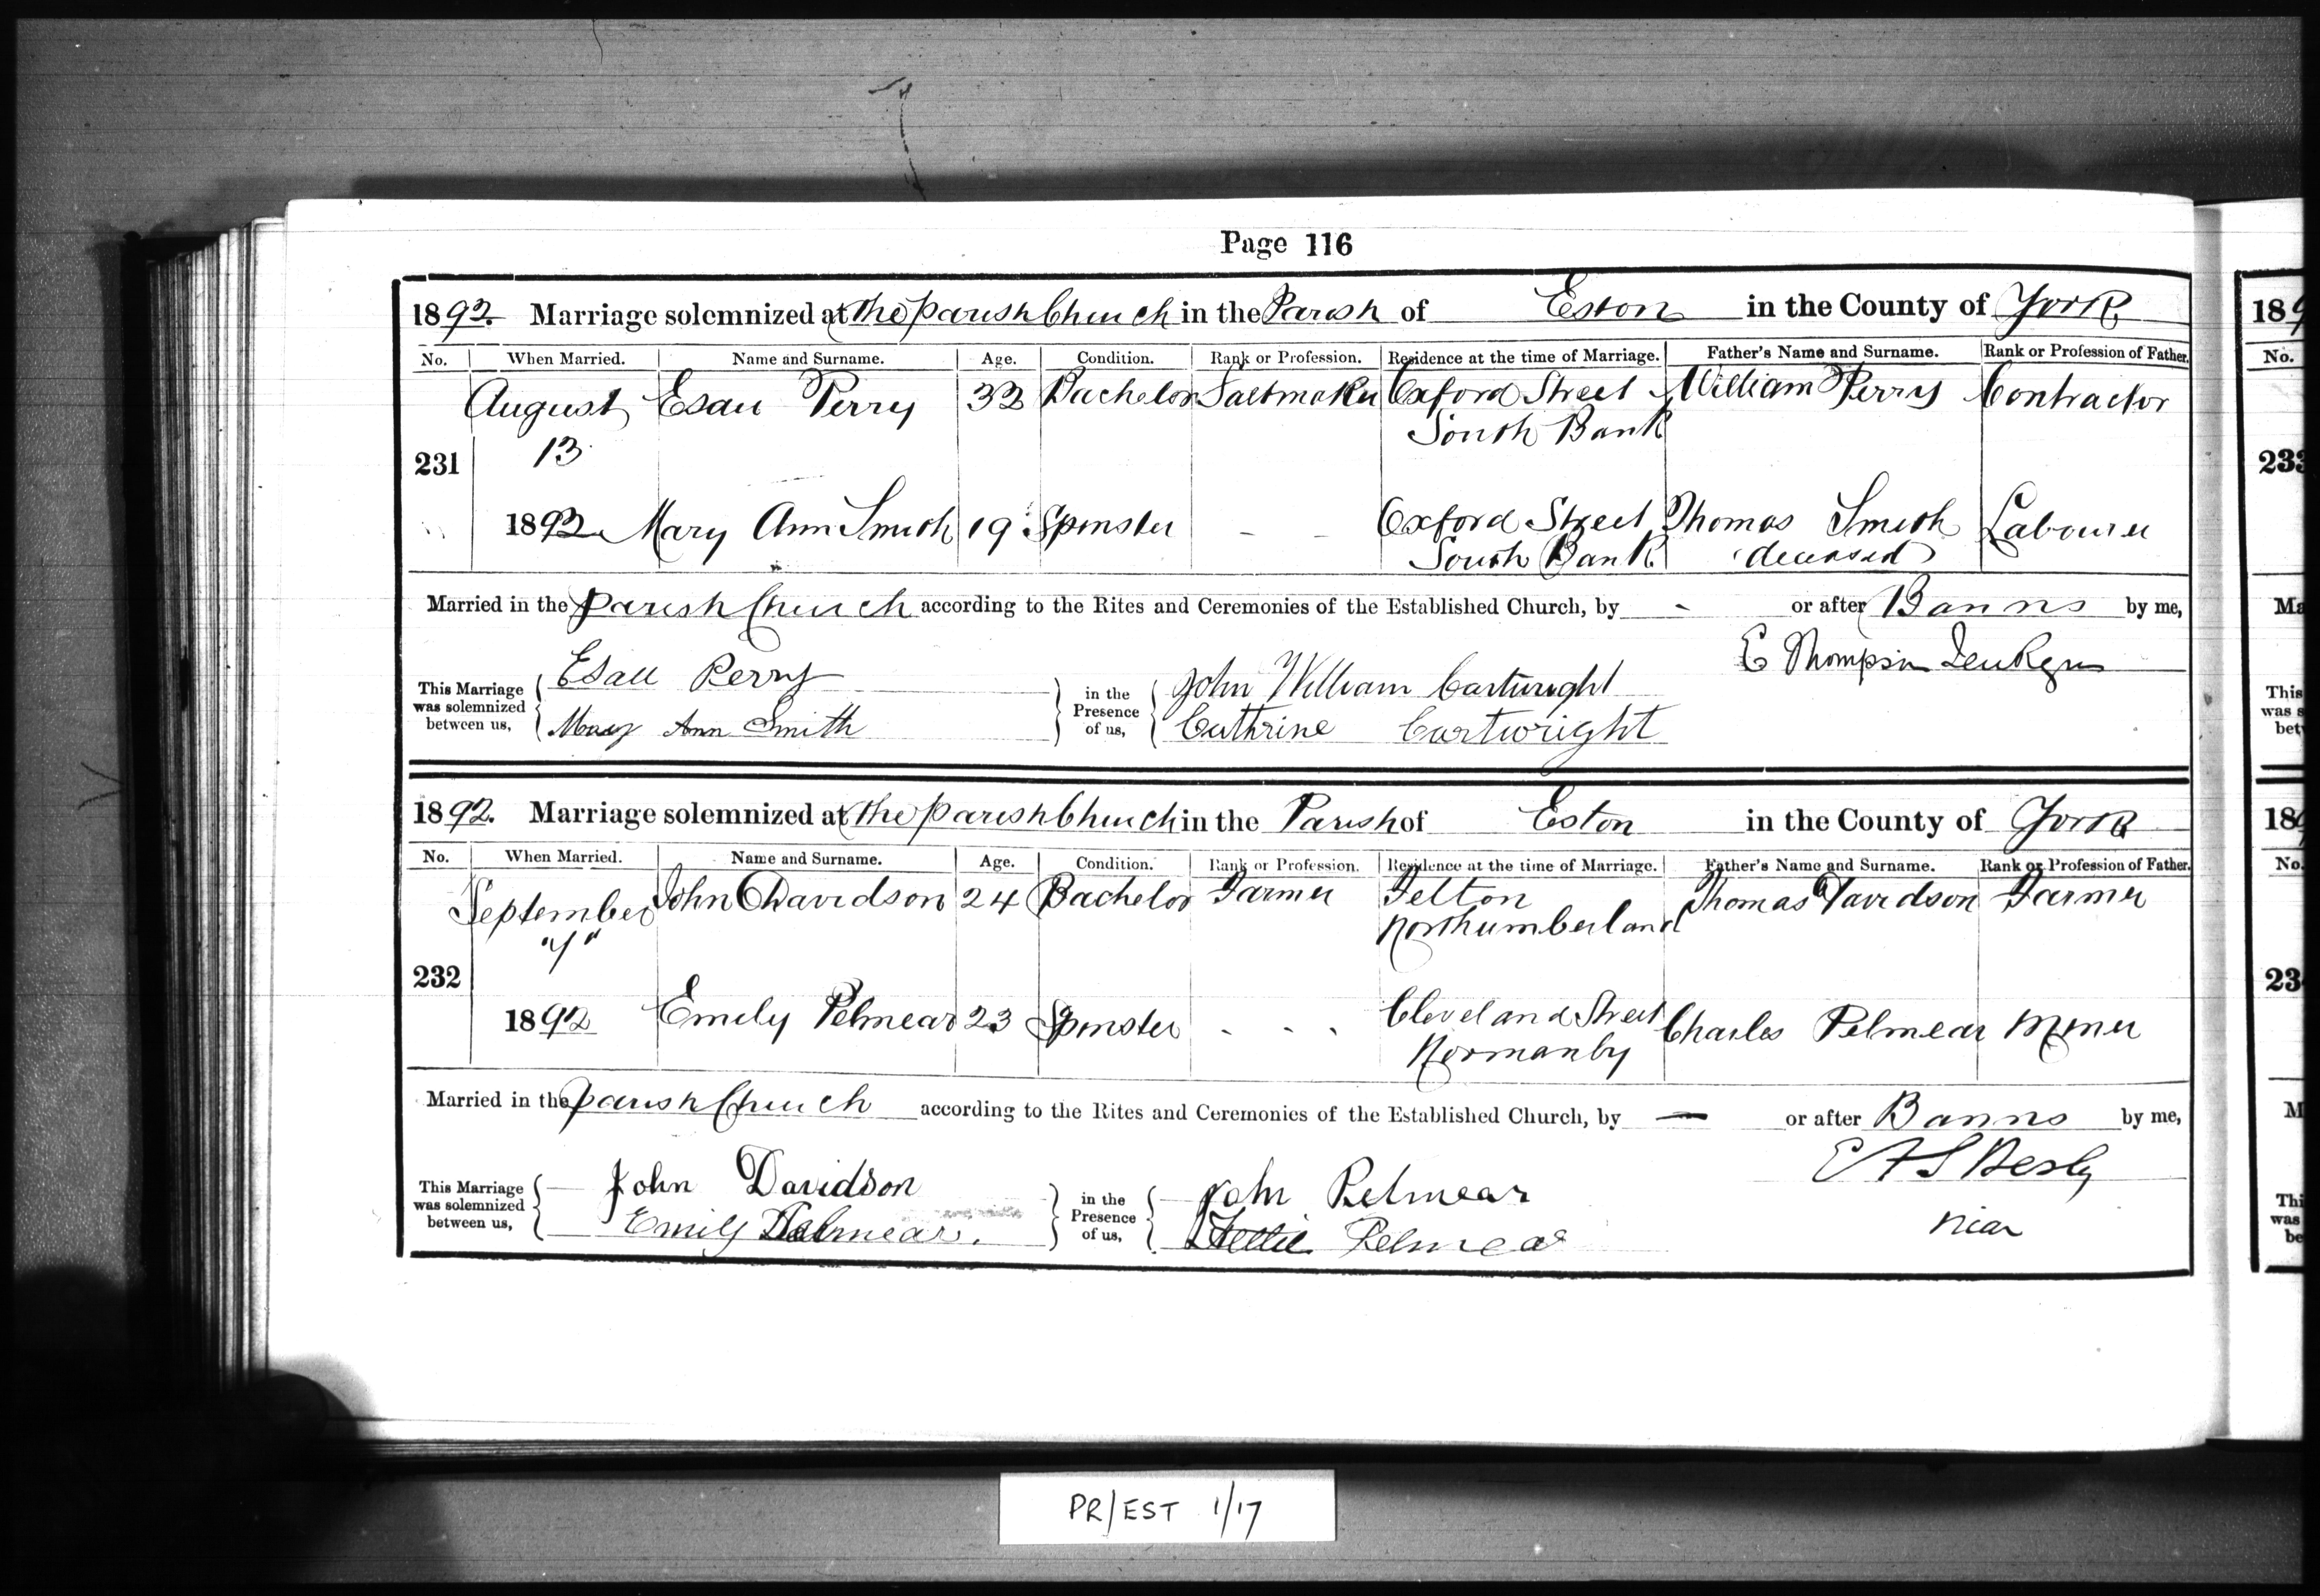 Page 116
1892. Marriage solemnized at the Parish Church in the Parish of Eston in the County of York
No. When Married. Name and Surname. Age. Condition. Rank or Profession. Residence at the time of Marriage. Father's Name and Surname. Rank or Profession of Father.
August Esau Perry 32 Bachelor Saltmaker Oxford Street William Perry Contractor
South Bank
231 13
1892 Mary Ann Smith 19 Spinster - - Oxford Street Thomas Smith Labourer
South Bank (deceased)
Married in the Parish Church according to the Rites and Ceremonies of the Established Church, by - or after Banns by me,
E Thompson
This Marriage was solemnized between us, Esau Perry in the Presence of us, John William Cartwright
Mary Ann Smith Cuthrine Cartwright
1892. Marriage solemnized at the Parish Church in the Parish of Eston in the County of York
No. When Married. Name and Surname. Age. Condition. Rank or Profession. Residence at the time of Marriage. Father's Name and Surname. Rank or Profession of Father.
September John Davidson 24 Bachelor Farmer Felton Thomas Davidson Farmer
Northumberland
232
1892 Emily Pelmear 23 Spinster - - - Cleveland Street Charles Pelmear Miner
Normanby
Married in the Parish Church according to the Rites and Ceremonies of the Established Church, by — or after Banns by me,
This Marriage was solemnized between us, John Davidson in the Presence of us, John Pelmear
Emily Pelmear. Pelmear
PR/EST 1/17
189
No.
233
Ma
This
was s
bet
189
No.
23
M
Thi
was
be